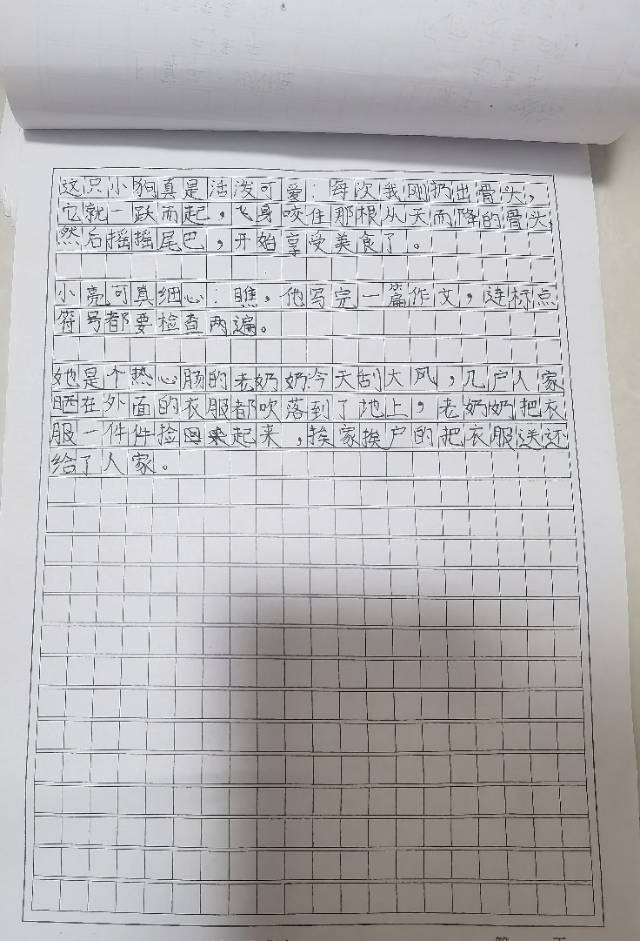 这只小狗真是活泼可爱:每次我刚扔出骨头,
它就一跃而起,飞身咬住那根从天而降的骨头,
然后摇摇尾巴,开始享受美食了。
小亮可真细心:瞧,他写完一篇作文,连标点
符号都要检查两遍。
她是个热心肠的老奶奶今天刮大风,几户人家
晒在外面的衣服都吹落到了地上,老奶奶把衣
服一件件捡起来,挨家挨户的把衣服送还
给了人家。